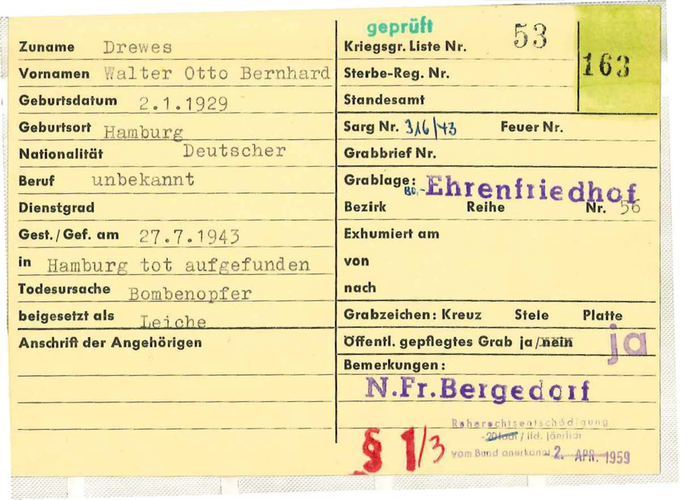 Zuname Drewes
Vornamen Walter Otto Bernhard
Geburtsdatum 2.1.1929
Geburtsort Hamburg
Nationalität Deutscher
Beruf unbekannt
Dienstgrad
Gest./Gef. am 27.7.1943
in Hamburg tot aufgefunden
Todesursache Bombenopfer
beigesetzt als Leiche
Anschrift der Angehörigen
geprüft
Kriegsgr. Liste Nr. 53
163
Sterbe-Reg. Nr.
Standesamt
Sarg Nr. 316/43 Feuer Nr.
Grabbrief Nr.
Grablage: Ehrenfriedhof
Bezirk Reihe Nr. 56
Exhumiert am
von
nach
Grabzeichen: Kreuz Stele Platte
Öffentl. gepflegtes Grab ja/nein ja
Bemerkungen:
N.Fr.Bergedorf
§ 1/3
vom Bund anerkannt 2. APR. 1959